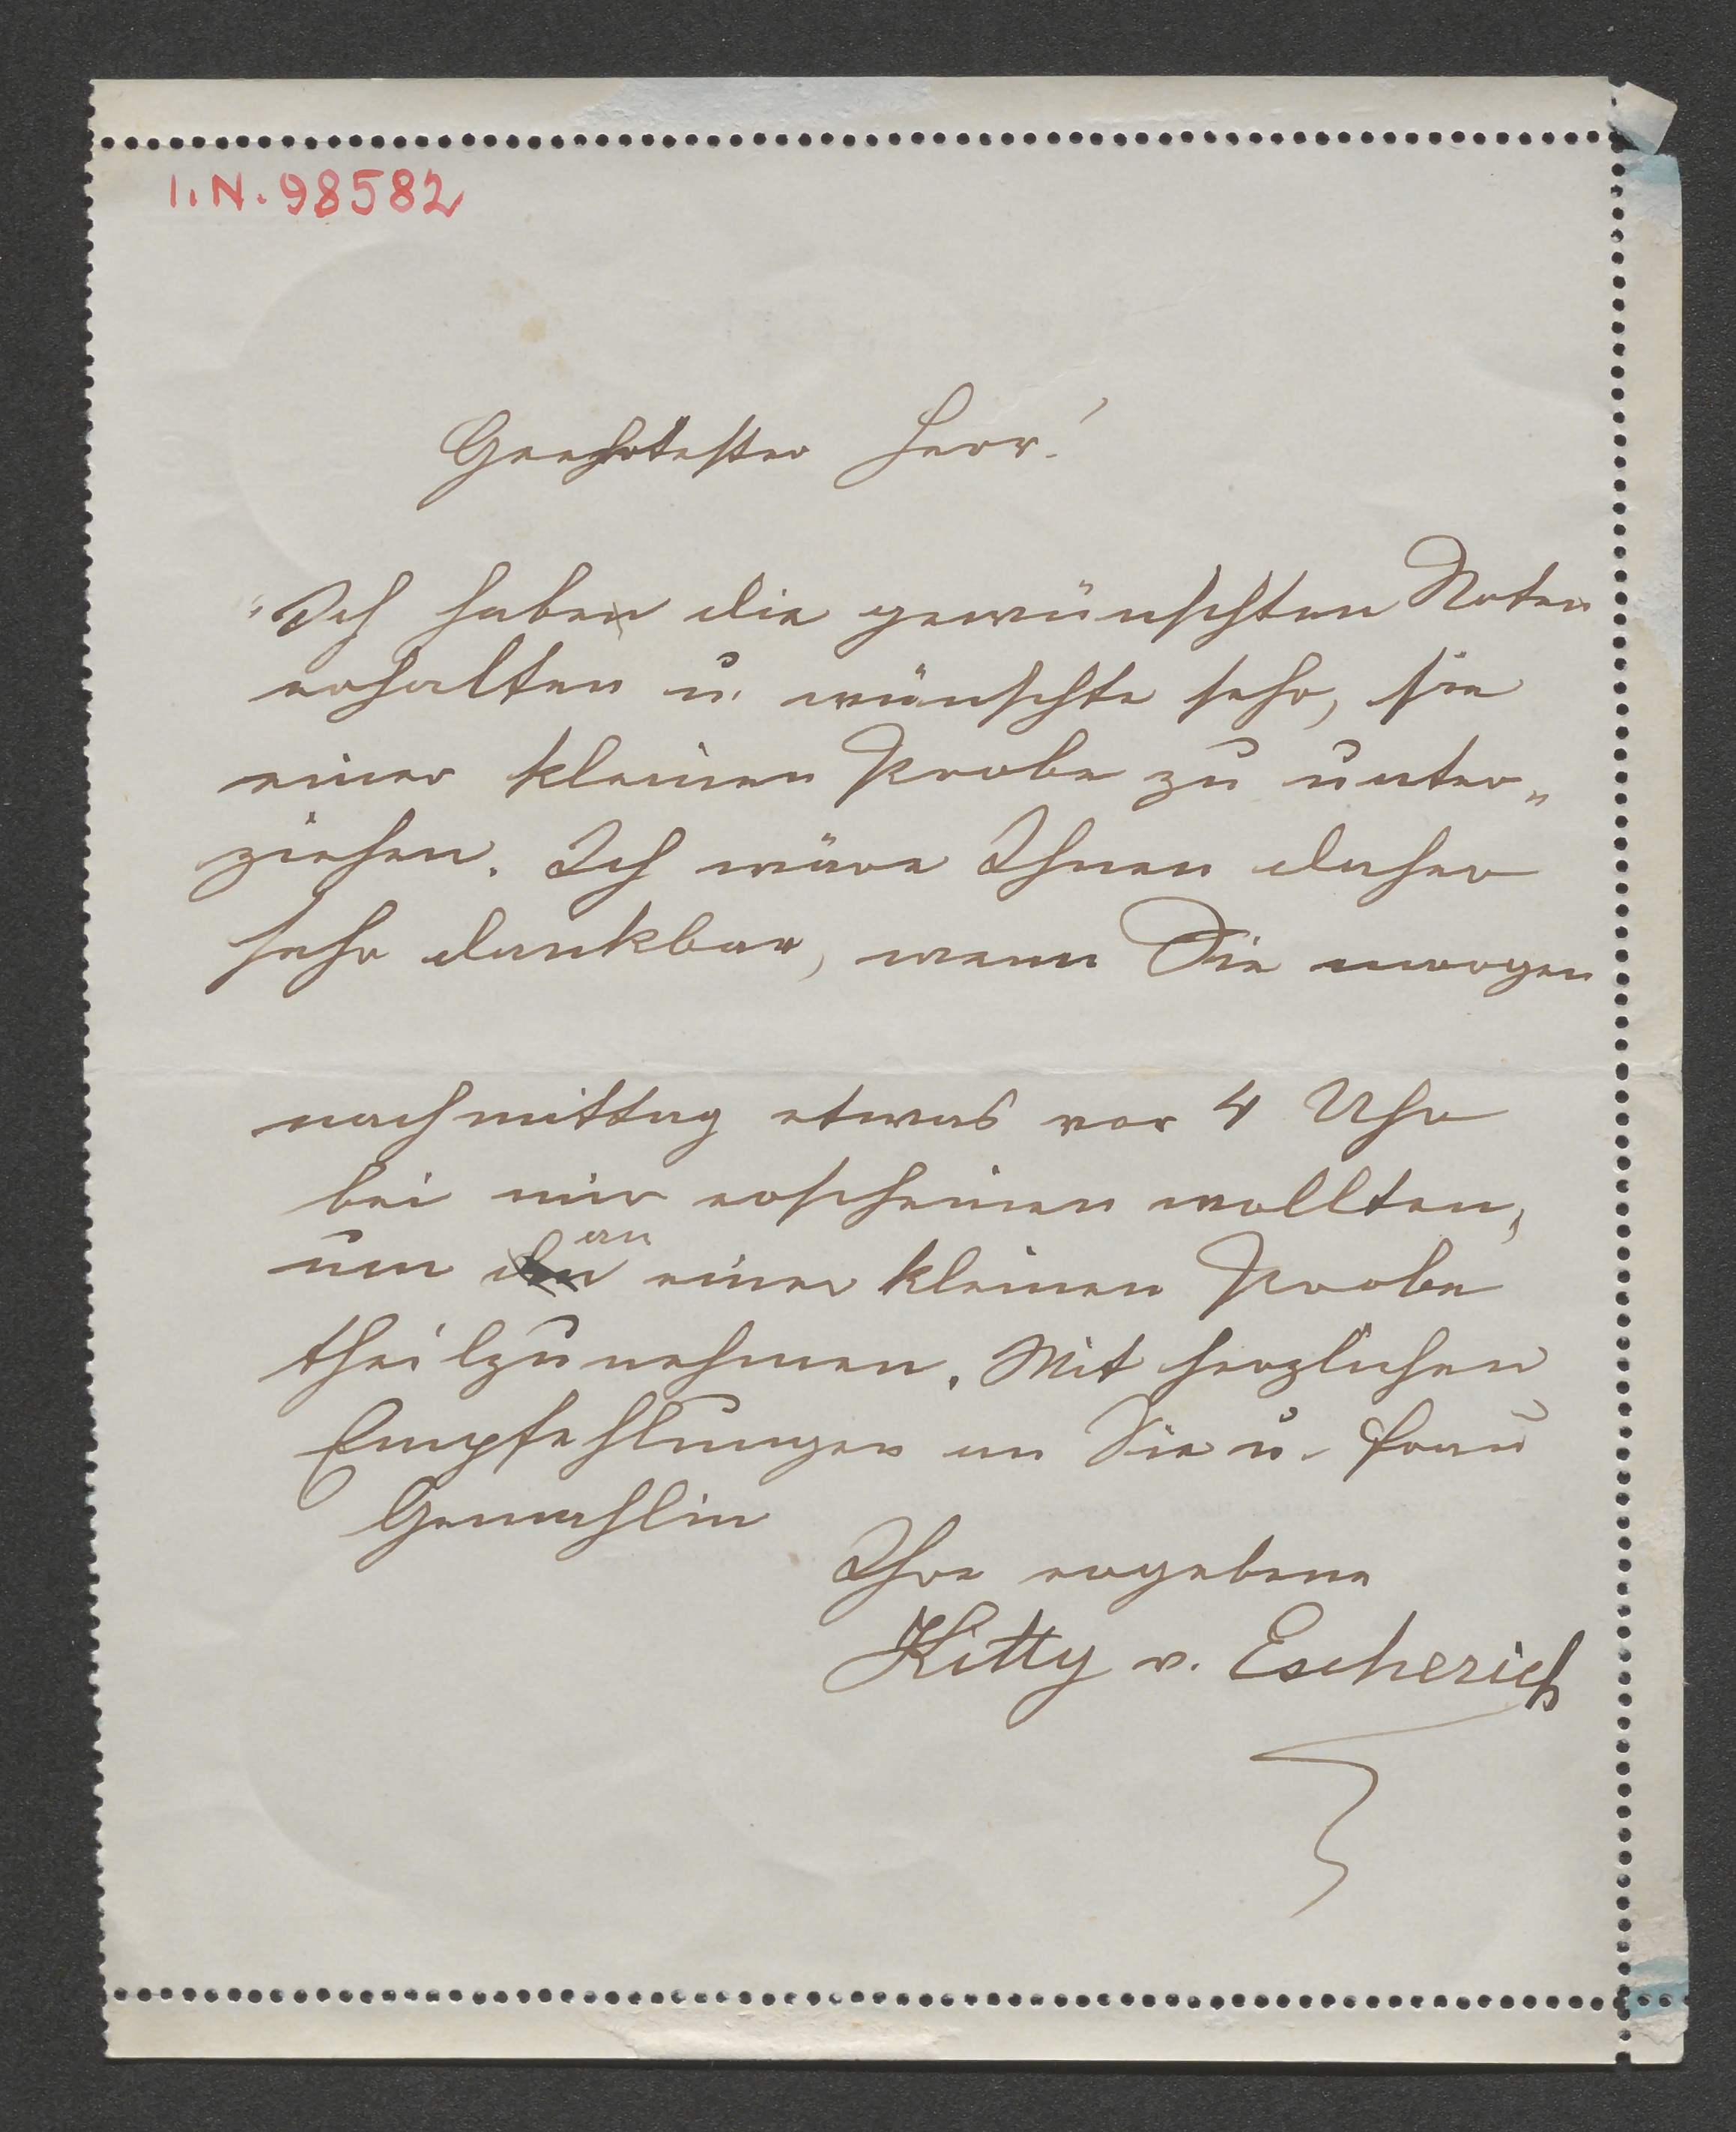 I.N. 98582
Geehrtester Herr!
Ich habe die gewünschten Noten
erhalten u. wünschte sehr, sie
einer kleinen Probe zu unter„
ziehen. Ich wäre Ihnen daher
sehr dankbar, wenn Sie morgen
nachmittag etwas vor 4 Uhr
bei mir erscheinen wollten,
um an einer kleinen Probe
theilzunehmen. Mit herzlichen
Empfehlungen an Sie u. Frau
Gemahlin
Ihre ergebene
Kitty v. Escherich